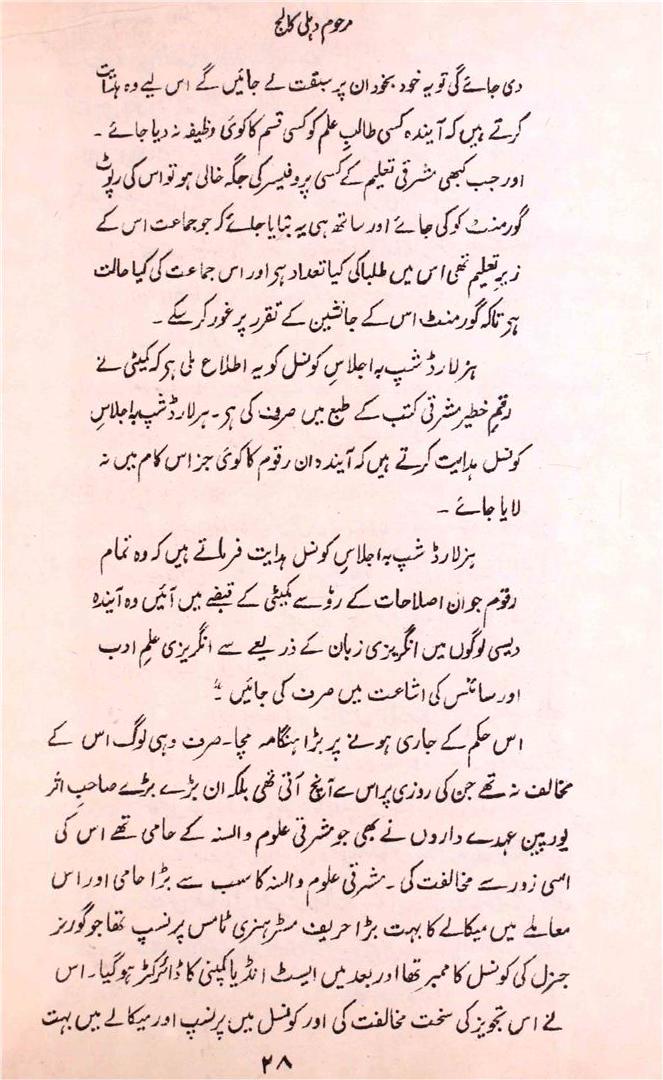 مرحوم دہلی کالج
دی جائے گی تو یہ خود بخود ان پر سبقت لے جائیں گے اس لیے وہ ہدایت
کرتے ہیں کہ آیندہ کسی طالبِ علم کو کسی قسم کا کوئی وظیفہ نہ دیا جائے ۔
اور جب کبھی مشرقی تعلیم کے کسی پروفیسر کی جگہ خالی ہو تو اس کی رپوٹ
گورمنٹ کو کی جائے اور ساتھ ہی یہ بتایا جائے کہ جو جماعت اس کے
زیرِ تعلیم تھی اس میں طلبا کی کیا تعداد ہر اور اس جماعت کی کیا حالت
ہر تاکہ گورمنٹ اس کے جانشین کے تقرر پر غور کر سکے ۔
ہز لارڈ شپ بہ اجلاسِ کونسل کو یہ اطلاع ملی ہر کہ کمیٹی نے
رقمِ خطیر مشرقی کتب کے طبع میں صرف کی ہر ۔ ہز لارڈ شپ بہ اجلاسِ
کونسل ہدایت کرتے ہیں کہ آیندہ ان رقوم کا کوئی جز اس کام میں نہ
لایا جائے ۔
ہز لارڈ شپ بہ اجلاسِ کونسل ہدایت فرماتے ہیں کہ وہ تمام
رقوم جو ان اصلاحات کے رؤ سے کمیٹی کے قبضے میں آئیں وہ آیندہ
دیسی لوگوں میں انگریزی زبان کے ذریعے سے انگریزی علمِ ادب
اور سائنس کی اشاعت میں صرف کی جائیں ۔"
اس حکم کے جاری ہونے پر بڑا ہنگامہ مچا ۔ صرف وہی لوگ اس کے
مخالف نہ تھے جن کی روزی پر اس سے آنچ آتی تھی بلکہ ان بڑے بڑے صاحبِ اثر
یورپین عہدے داروں نے بھی جو مشرقی علوم و السنہ کے حامی تھے اس کی
اسی زور سے مخالفت کی ۔ مشرقی علوم و السنہ کا سب سے بڑا حامی اور اس
معاملے میں میکالے کا بہت بڑا حریف مسٹر ہنری ٹامس پرنسپ تھا جو گورنر
جنرل کی کونسل کا ممبر تھا اور بعد میں ایسٹ انڈیا کمپنی کا ڈائرکٹر ہو گیا ۔ اس
نے اس تجویز کی سخت مخالفت کی اور کونسل میں پرنسپ اور میکالے میں بہت
۲۸